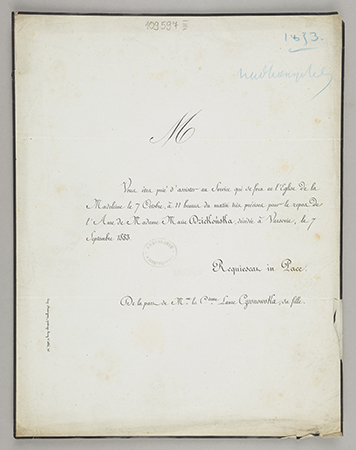 109597 III
1853.
M
Vous êtes prié d'assister au Service qui se fera en l'Eglise de la
Madeleine le 7 Octobre, à 11 heures du matin très précises pour le repos de
l'Ame de Madame Marie Dziekońska, décédée à Varsovie, le 7
Septembre 1853.
Requiescat in Pace.
De la part de Mme la Ctesse Laure Czosnowska, sa fille.